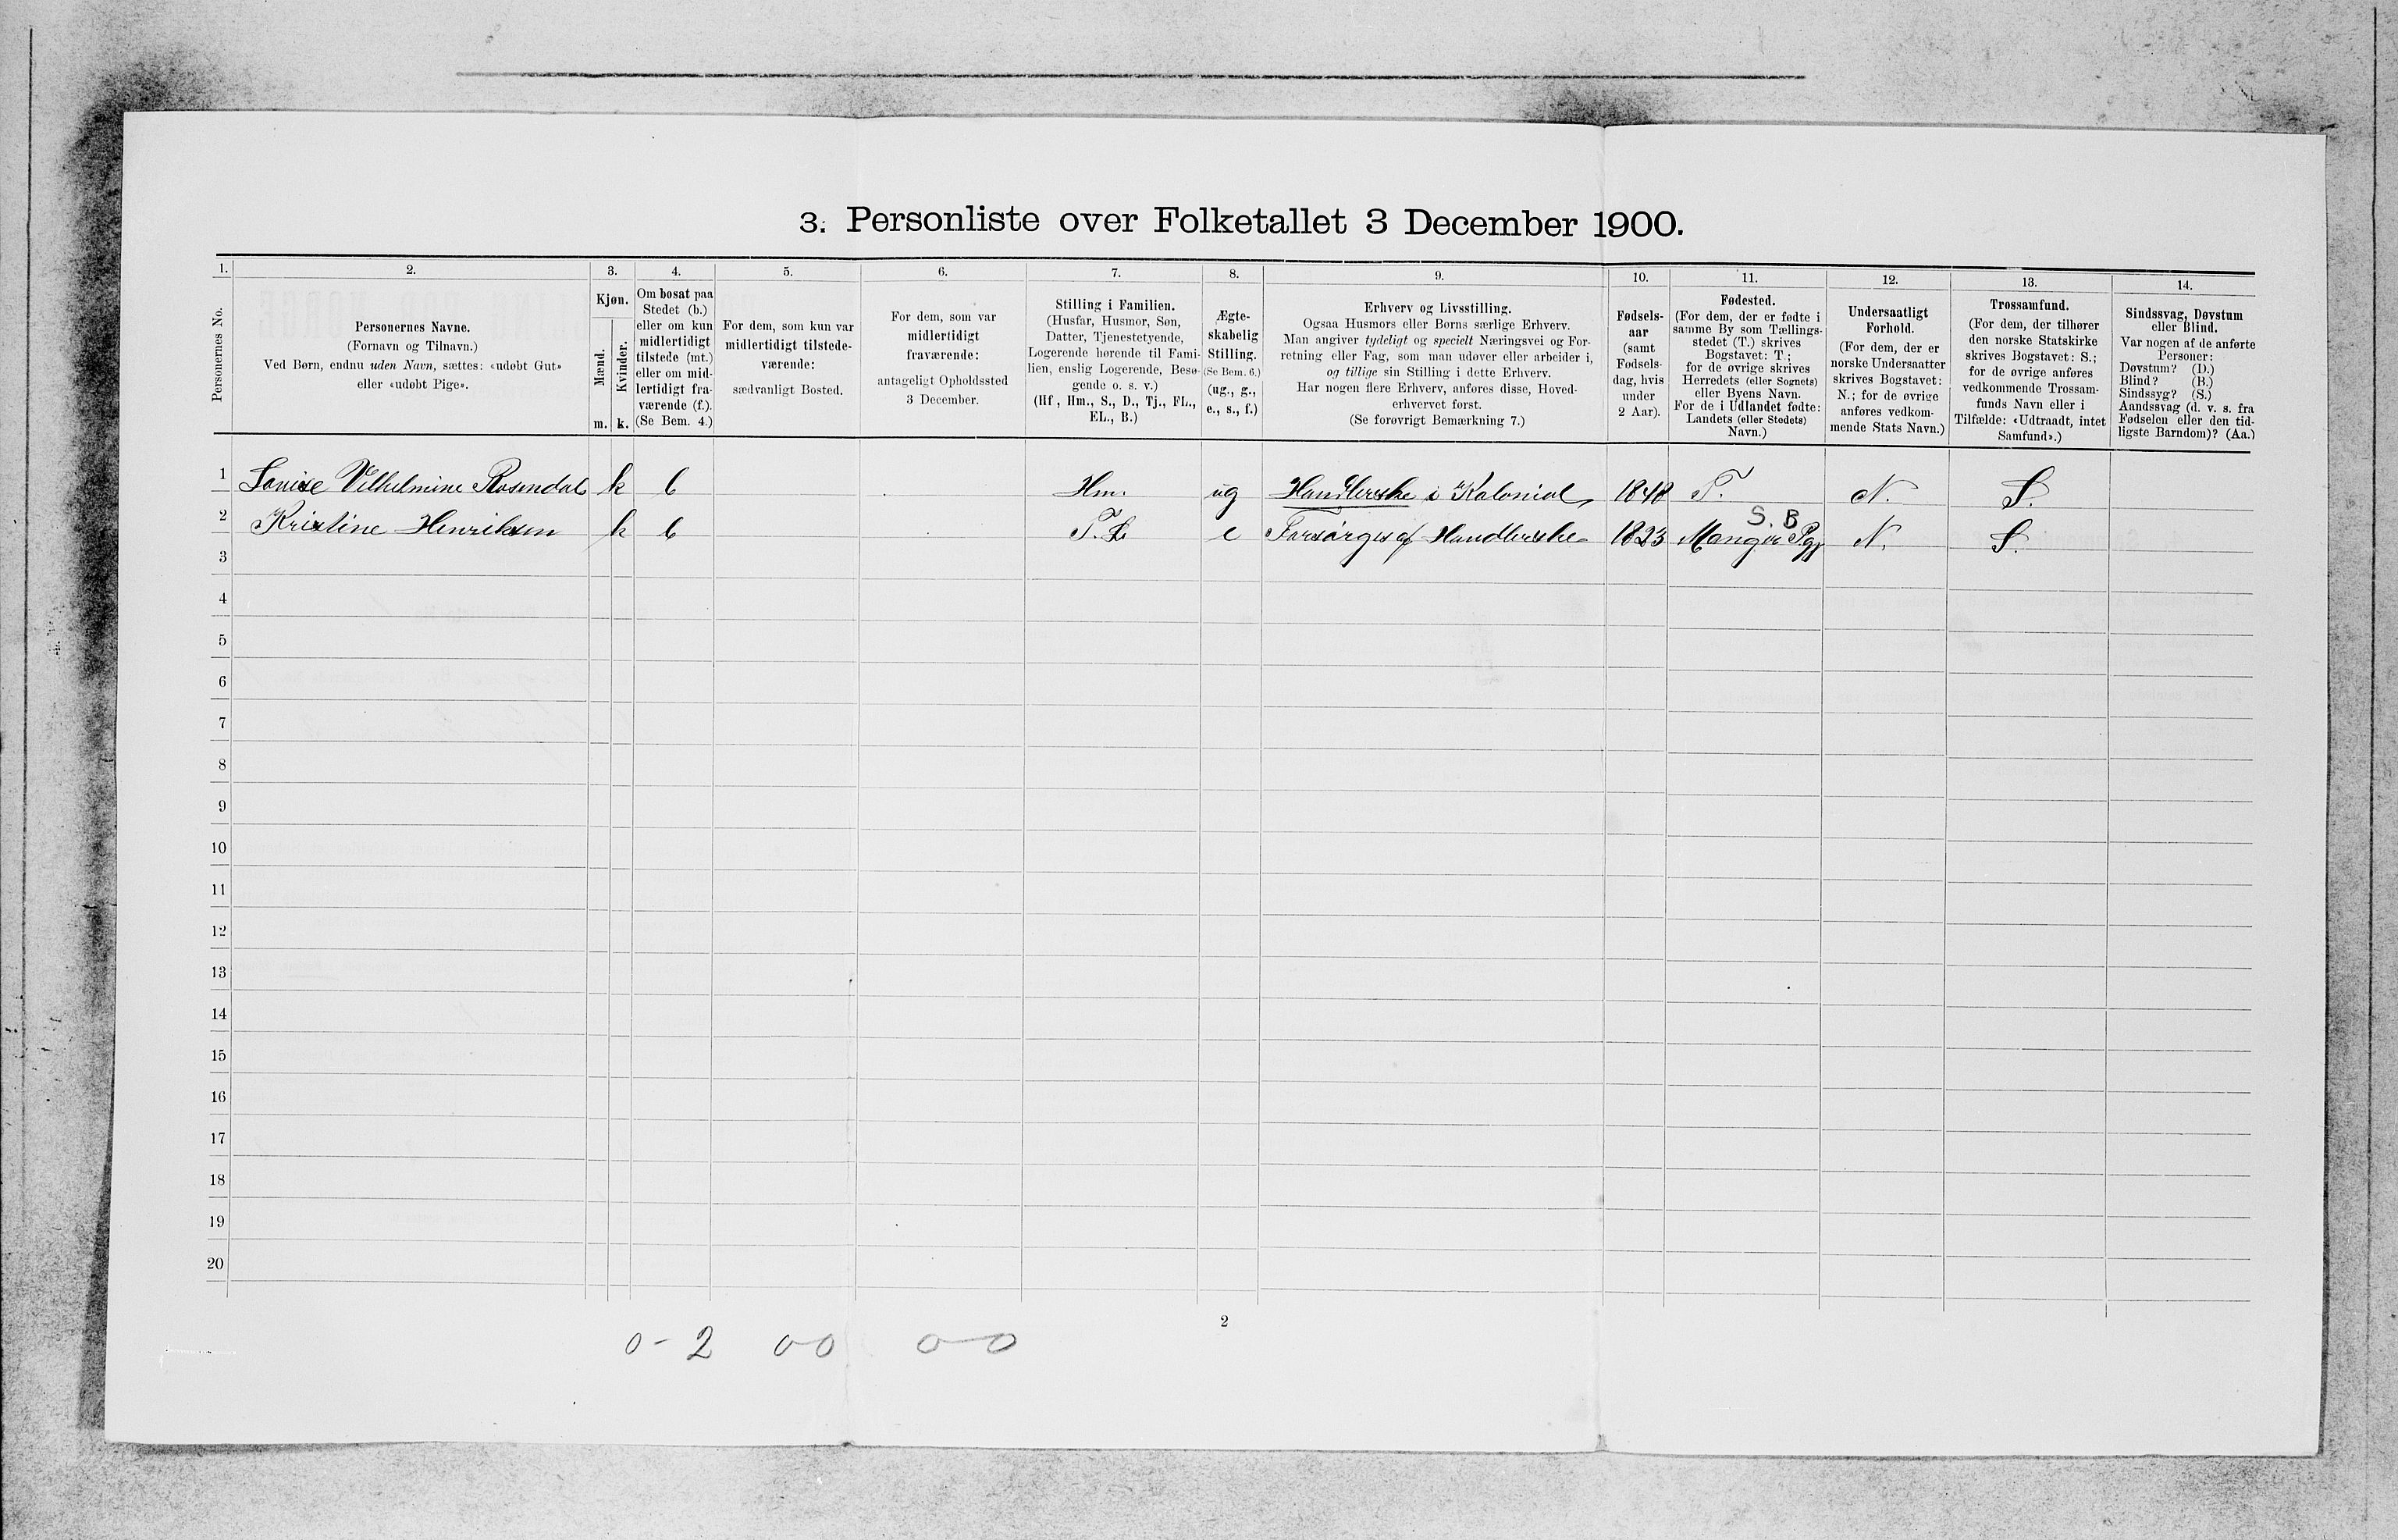 3. Personliste over Folketallet 3 December 1900.
1. 2. 3. 4. 5. 6. 7. 8. 9. 10. 11. 12. 13. 14.
Personernes No.
Personernes Navne.
(Fornavn og Tilnavn.)
Ved Børn, endnu uden Navn, sættes: «udøbt Gut»
eller «udøbt Pige».
Kjøn.
Mænd.
Kvinder.
m. k.
Om bosat paa
Stedet (b.)
eller om kun
midlertidigt
tilstede (mt.)
eller om mid-
lertidigt fra-
værende (f.).
(Se Bem. 4.)
For dem, som kun var
midlertidigt tilstede-
værende:
sædvanligt Bosted.
For dem, som var
midlertidigt
fraværende:
antageligt Opholdssted
3 December.
Stilling i Familien.
(Husfar, Husmor, Søn,
Datter, Tjenestetyende,
Logerende hørende til Fami-
lien, enslig Logerende, Besø-
gende o. s. v.)
(Hf, Hm., S., D., Tj., FL.,
EL., B.)
Ægte-
skabelig
Stilling.
(Se Bem. 6.)
(ug., g.,
e., s., f.)
Erhverv og Livsstilling.
Ogsaa Husmors eller Børns særlige Erhverv.
Man angiver tydeligt og specielt Næringsvei og For-
retning eller Fag, som man udøver eller arbeider i,
og tillige sin Stilling i dette Erhverv.
Har nogen flere Erhverv, anføres disse, Hoved-
erhvervet først.
(Se forøvrigt Bemærkning 7.)
Fødsels-
aar
(samt
Fødsels-
dag, hvis
under
2 Aar).
Fødested.
(For dem, der er fødte i
samme By som Tællings-
stedet (T.) skrives
Bogstavet: T;
for de øvrige skrives
Herredets (eller Sognets)
eller Byens Navn.
For de i Udlandet fødte:
Landets (eller Stedets)
Navn.)
Undersaatligt
Forhold.
(For dem, der er
norske Undersaatter
skrives Bogstavet:
N.; for de øvrige
anføres vedkom-
mende Stats Navn.)
Trossamfund.
(For dem, der tilhører
den norske Statskirke
skrives Bogstavet: S.;
for de øvrige anføres
vedkommende Trossam-
funds Navn eller i
Tilfælde: «Udtraadt, intet
Samfund».)
Sindssvag, Døvstum
eller Blind.
Var nogen af de anførte
Personer:
Døvstum? (D.)
Blind? (B.)
Sindssyg? (S.)
Aandssvag (d. v. s. fra
Fødselen eller den tid-
ligste Barndom)? (Aa.)
1 Louise Vilhelmine Rosendal k b Hm. ug Handlerske i Kolonial, 1848 T. N. S.
S. B
2 Kristine Henriksen k b F.L e Forsørges af Handlerske 1823 Manger Pgj N. S.
3
4
5
6
7
8
9
10
11
12
13
14
15
16
17
18
19
20
2
0-2 00 0-0